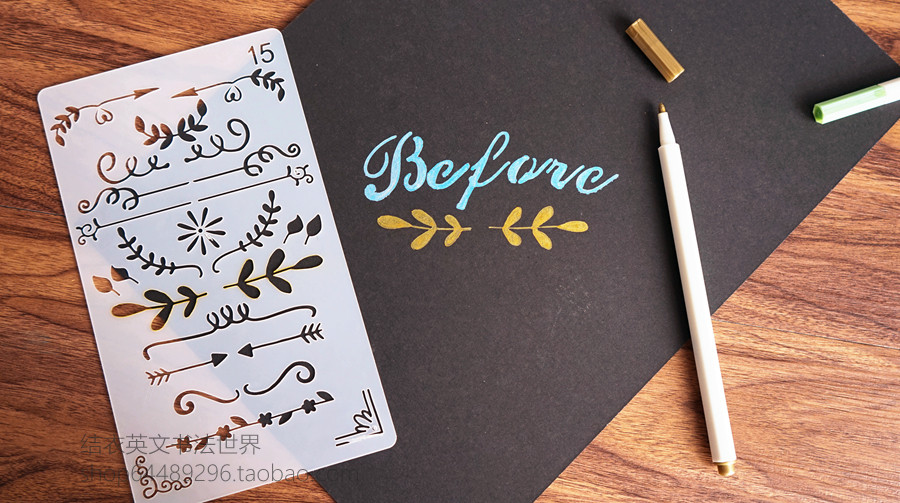 15
Before
结衣英文书法世界
64489296.taobao.com